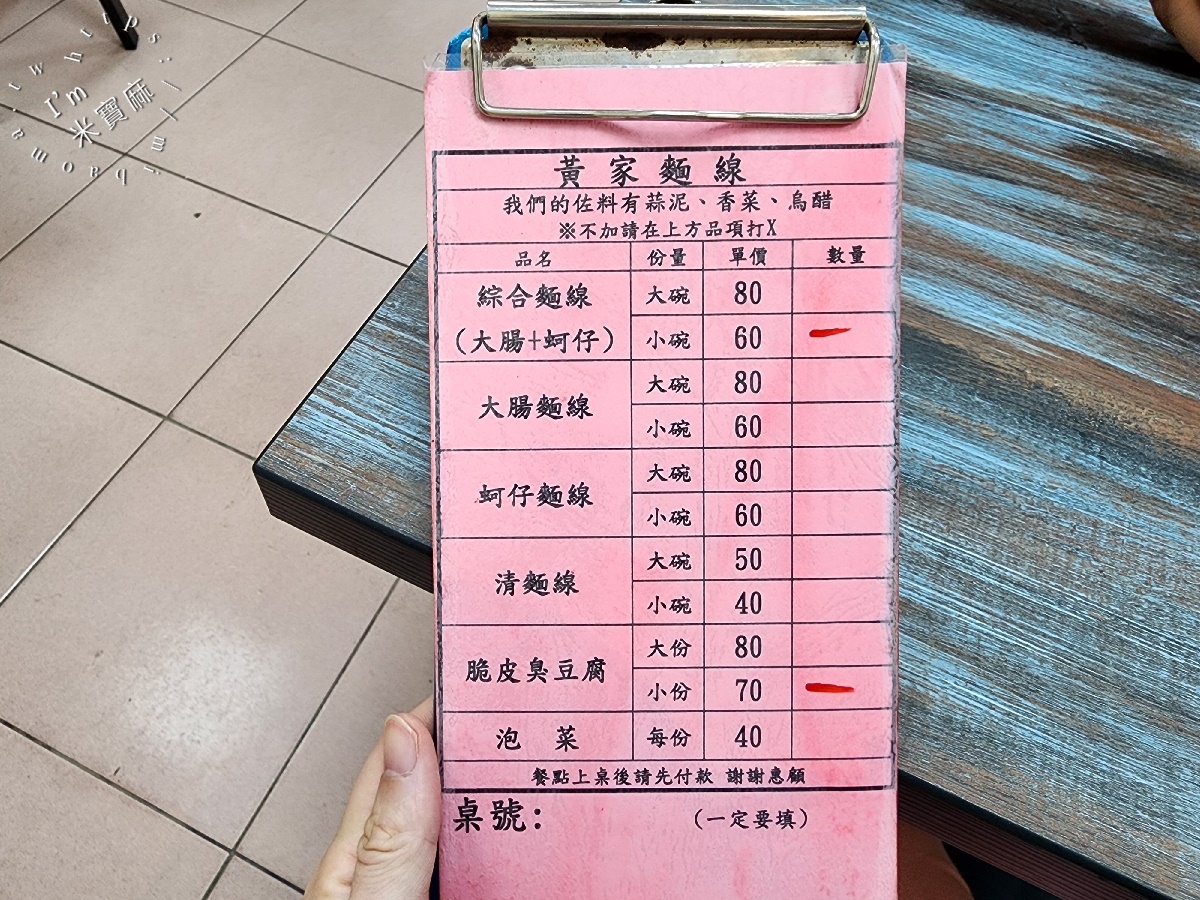 I'm
米寶麻
黃家麵線
我們的佐料有蒜泥、香菜、烏醋
※不加請在上方品項打X
品名 份量 單價 數量
綜合麵線 大碗 80
(大腸+蚵仔) 小碗 60
大腸麵線 大碗 80
小碗 60
蚵仔麵線 大碗 80
小碗 60
清麵線 大碗 50
小碗 40
脆皮臭豆腐 大份 80
小份 70
泡菜 每份 40
餐點上桌後請先付款 謝謝惠顧
桌號: (一定要填)